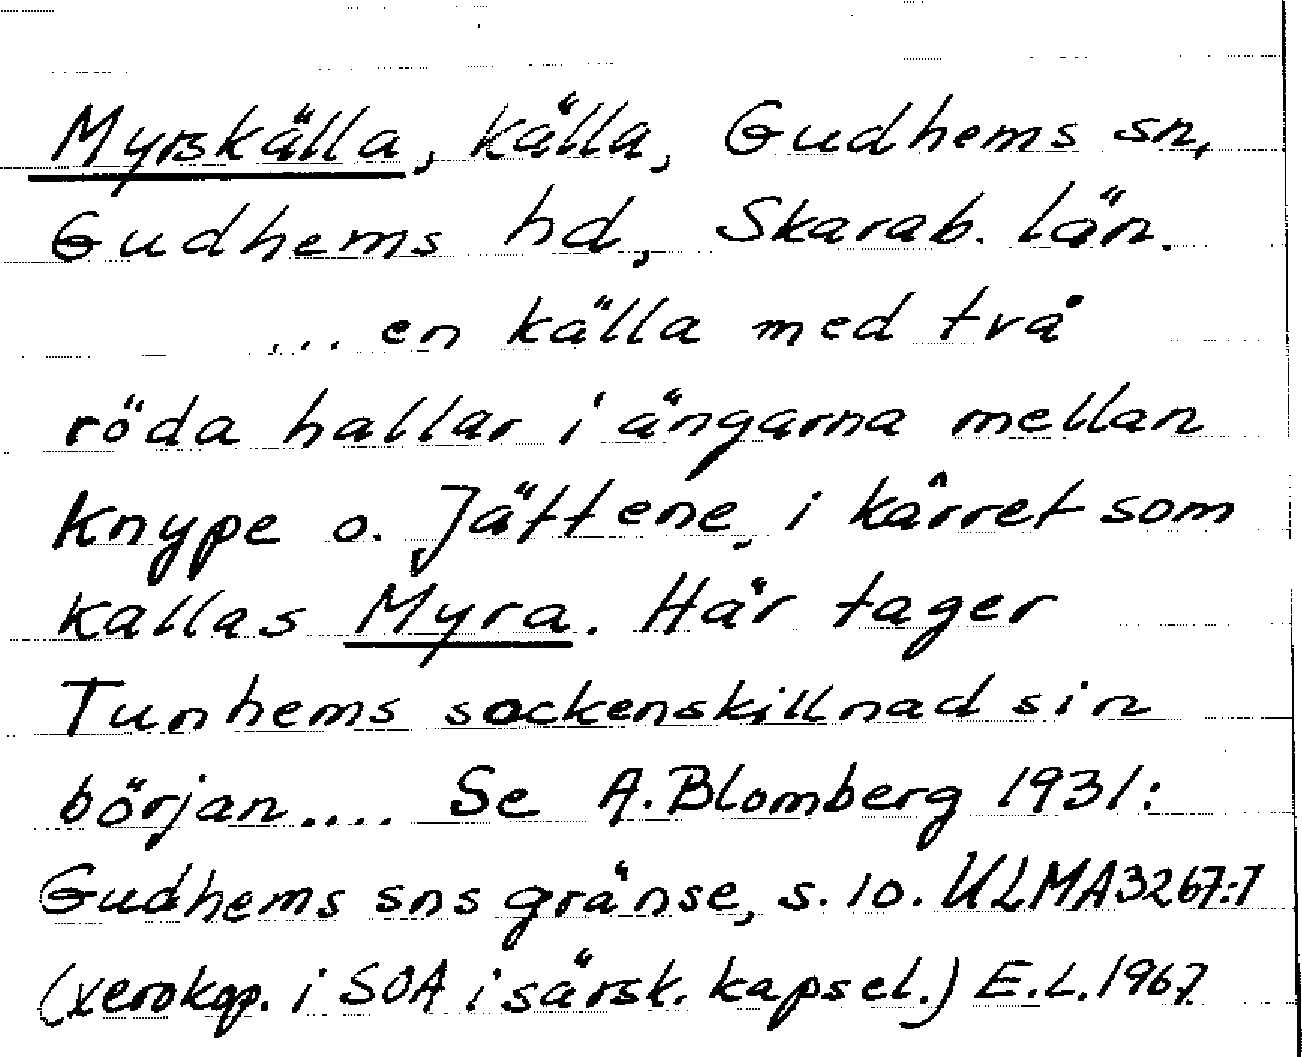 Myrskälla, källa, Gudhems sn,
Gudhems hd, Skarab. län.
... en källa med två
röda hallar i ängarna mellan
Knype o. Jättene, i kärret som
kallas Myra. Här tager
Tunhems sockenskillnad sin
början.... Se A. Blomberg 1931:
Gudhems sns gränse, s. 10. ULMA 3267:7
(xerokop. i SOA i särsk. kapsel.) E.L. 1967